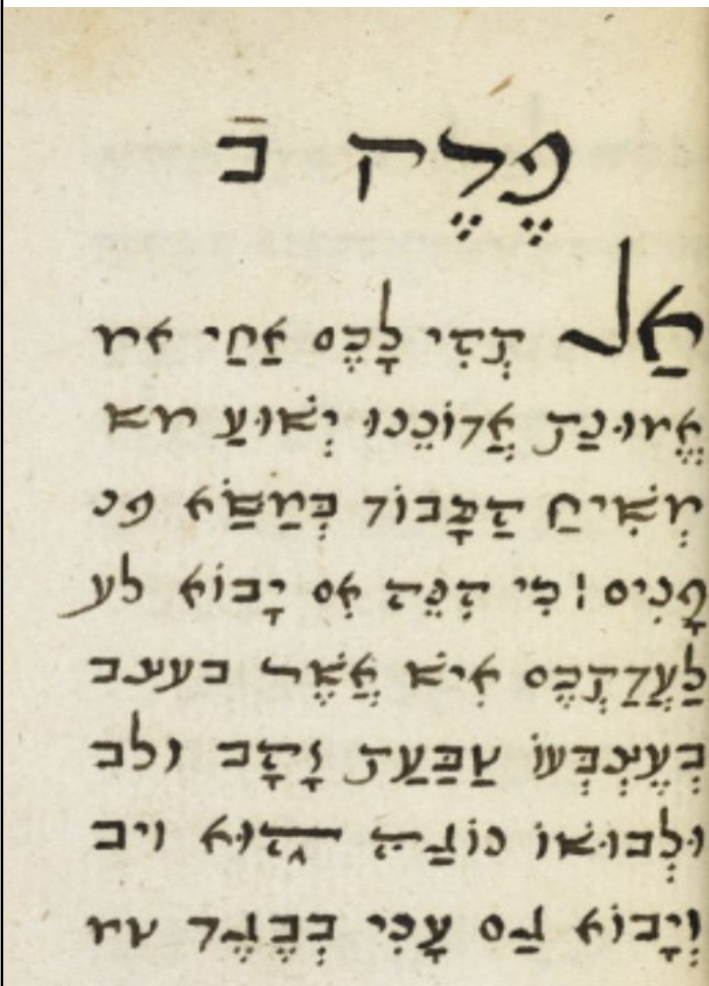 פֶרֶק בֿ
אַל תְהִי לָכֶם אַחַי אמ
אֱמוּנַת אֲדוֹנֵנוּ יְשׁוּעַ מש
מְשִׁיחַ הַכָּבוֹד בְּמַשַּׂא פנ
פָנִים ׃ כִי הִנֵה אִם יָבוֹא לע
לַעֲדַתְכֶם אִישׁ אֲשֶׁר בעצב
בְעֶצְבְּעוֹ טַבַּעַת זָהָב ולב
וּלְבוּשׁוֹ נוֹגַהּ הוּא ויב
וְיָבוֹא גַם עָנִי בְבֶגֶד טמ